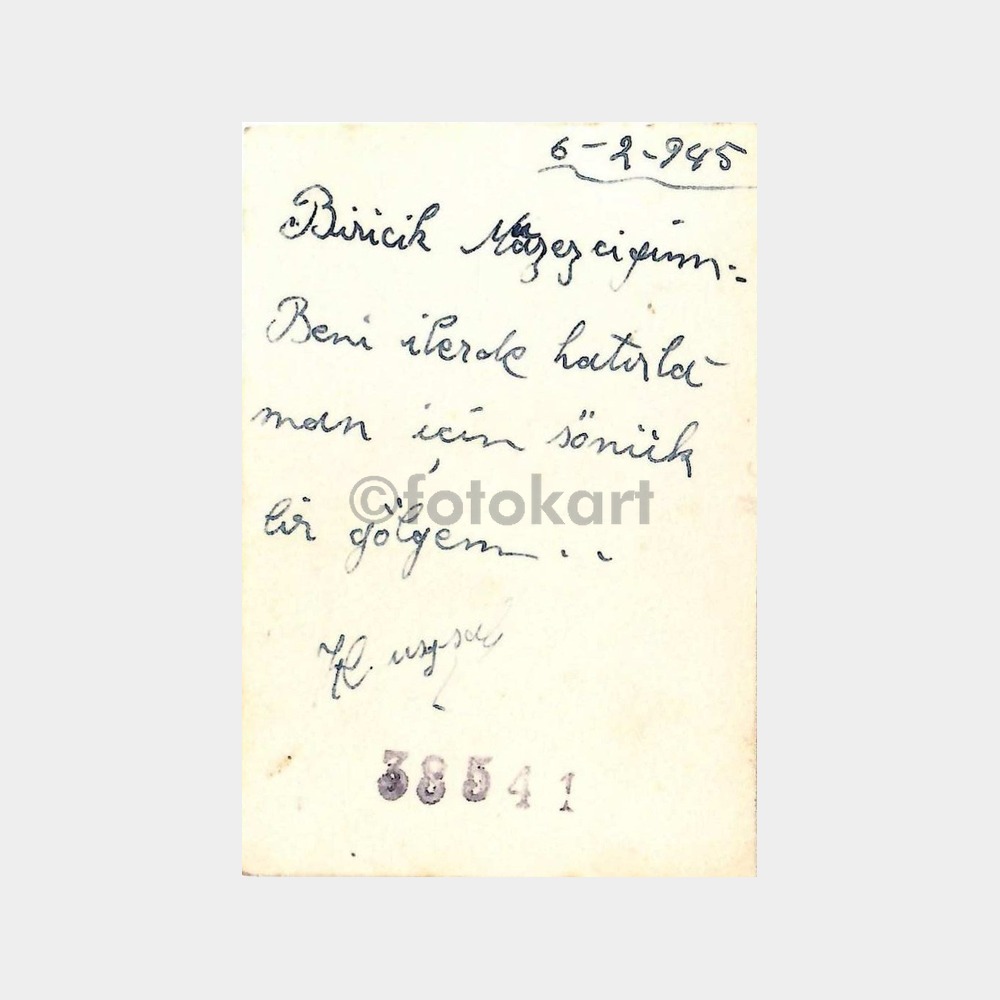 6-2-945
Biricik
Beni ilerde hatırla-
man için sönük
bir gölgem...
©fotokart
38541